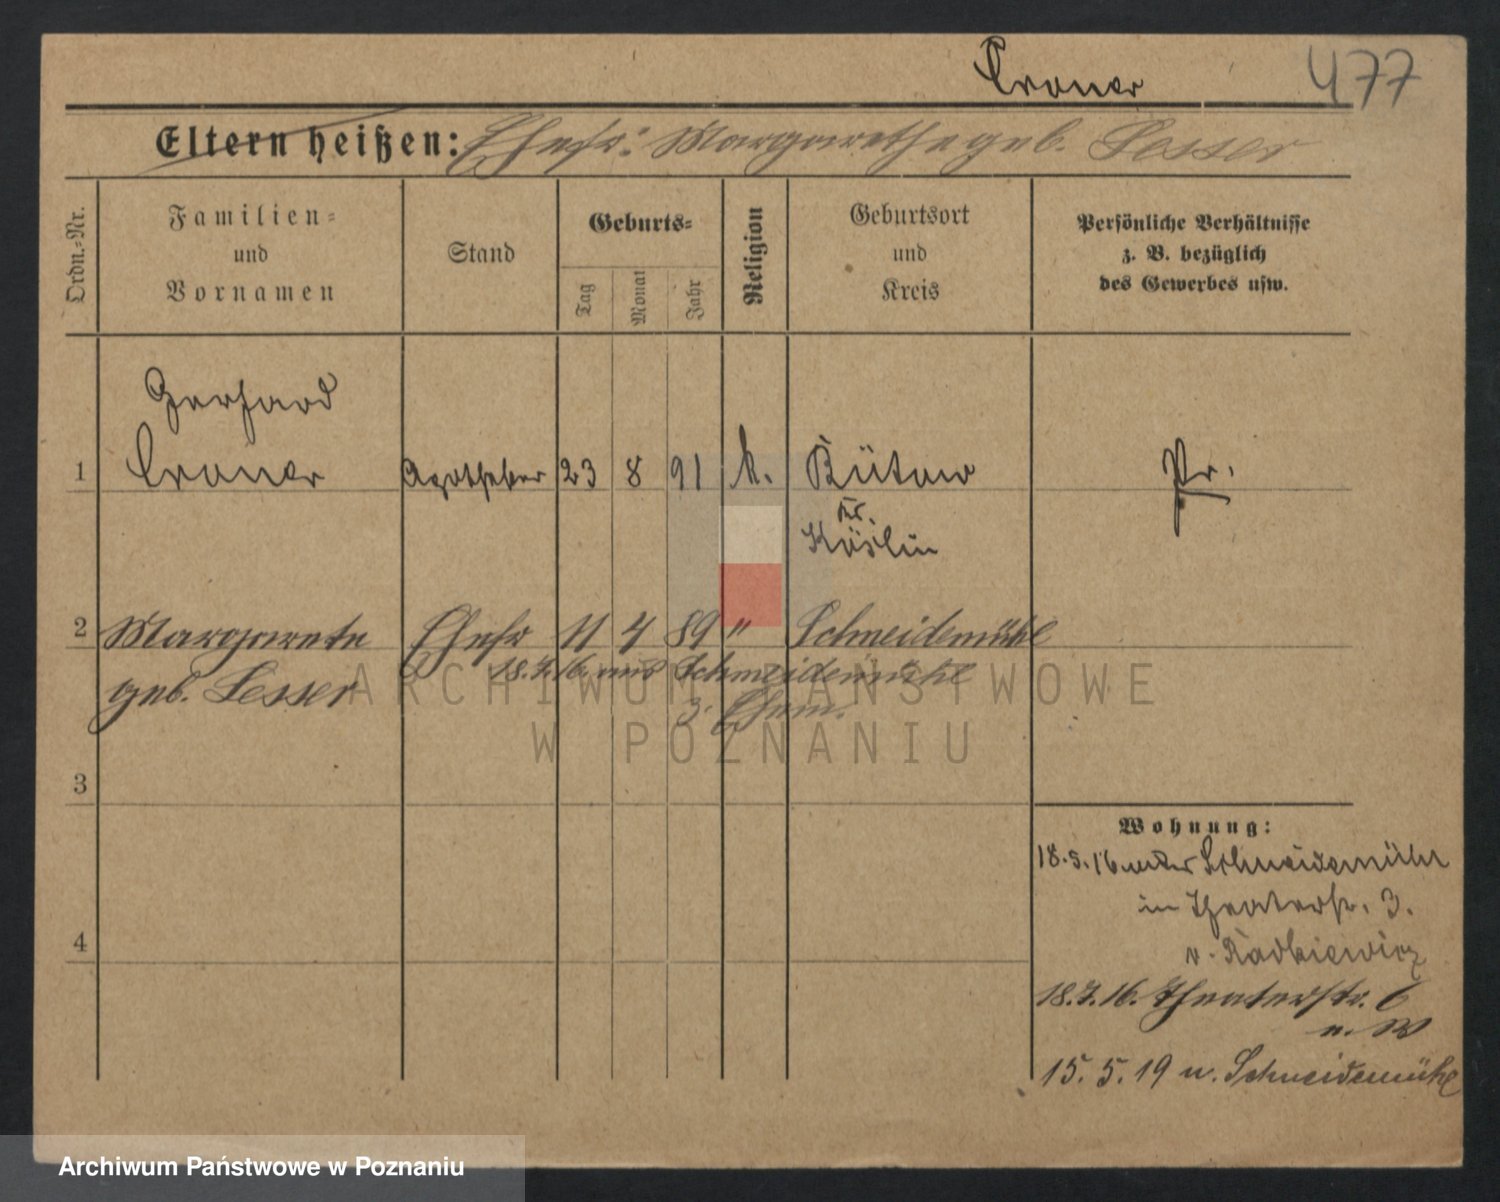 Croner
477
Eltern heißen: Ehefr: Margarethe geb. Lesser
Ordn.-Nr.
Familien-
und
Vornamen
Stand
Geburts-
Tag
Monat
Jahr
Religion
Geburtsort
und
Kreis
Persönliche Verhältnisse
z. B. bezüglich
des Gewerbes usw.
Gerhard
1 Croner Apotheker 23 8 91 k. Bütow Pr.
Kr.
Köslin
2 Margarete Ehefr 11 4 89 " Schneidemühl
geb. Lesser 18.7.16. aus Schneidemühl
z. Ehem.
3
4
Wohnung:
18.5.16 Schneidemühl
in Theaterstr. 3.
v. Radkiewicz
18.7.16. Theaterstr. 6
n. W
15.5.19 n. Schneidemühl
ARCHIWUM PAŃSTWOWE
W POZNANIU
Archiwum Państwowe w Poznaniu